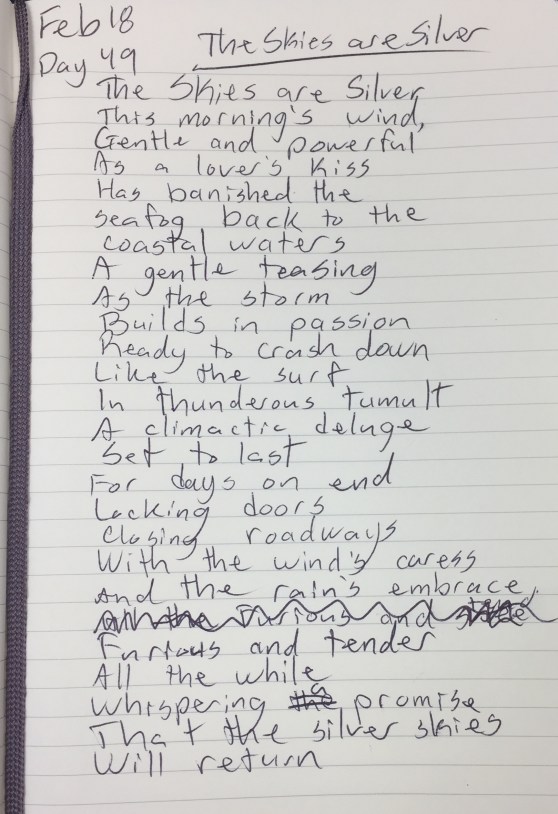 Feb 18
The Skies are Silver
Day 49
The Skies are Silver
This morning's wind,
Gentle and powerful
As a lover's kiss
Has banished the
seafog back to the
coastal waters
A gentle teasing
As the storm
Builds in passion
Ready to crash down
Like the surf
In thunderous tumult
A climactic deluge
Set to last
For days on end
Locking doors
Closing roadways
With the wind's caress
And the rain's embrace,
furious and
Furious and tender
All the while
Whispering the a promise
That the silver skies
Will return